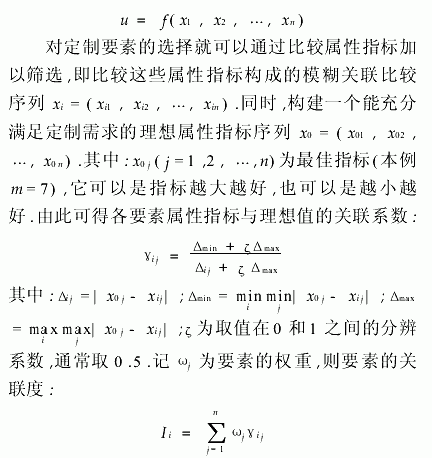 u = f( x₁ , x₂ , …, xₙ )
对定制要素的选择就可以通过比较属性指标加
以筛选,即比较这些属性指标构成的模糊关联比较
序列 xᵢ = ( xᵢ₁ , xᵢ₂ , …, xᵢₙ ) .同时,构建一个能充分
满足定制需求的理想属性指标序列 x₀ = ( x₀₁ , x₀₂ ,
…, x₀ₙ ) .其中: x₀ⱼ ( j = 1 ,2 , …, n) 为最佳指标(本例
m = 7) ,它可以是指标越大越好,也可以是越小越
好.由此可得各要素属性指标与理想值的关联系数:
γᵢⱼ = (Δmin + ζΔmax) / (Δᵢⱼ + ζΔmax)
其中: Δᵢⱼ = | x₀ⱼ - xᵢⱼ | ; Δmin = min_i min_j | x₀ⱼ - xᵢⱼ | ; Δmax
= max_i max_j | x₀ⱼ - xᵢⱼ | ; ζ 为取值在 0 和 1 之间的分辨
系数,通常取 0 .5 .记 ωⱼ 为要素的权重,则要素的关
联度:
Iᵢ = ∑_{j=1}^{n} ωⱼ γᵢⱼ